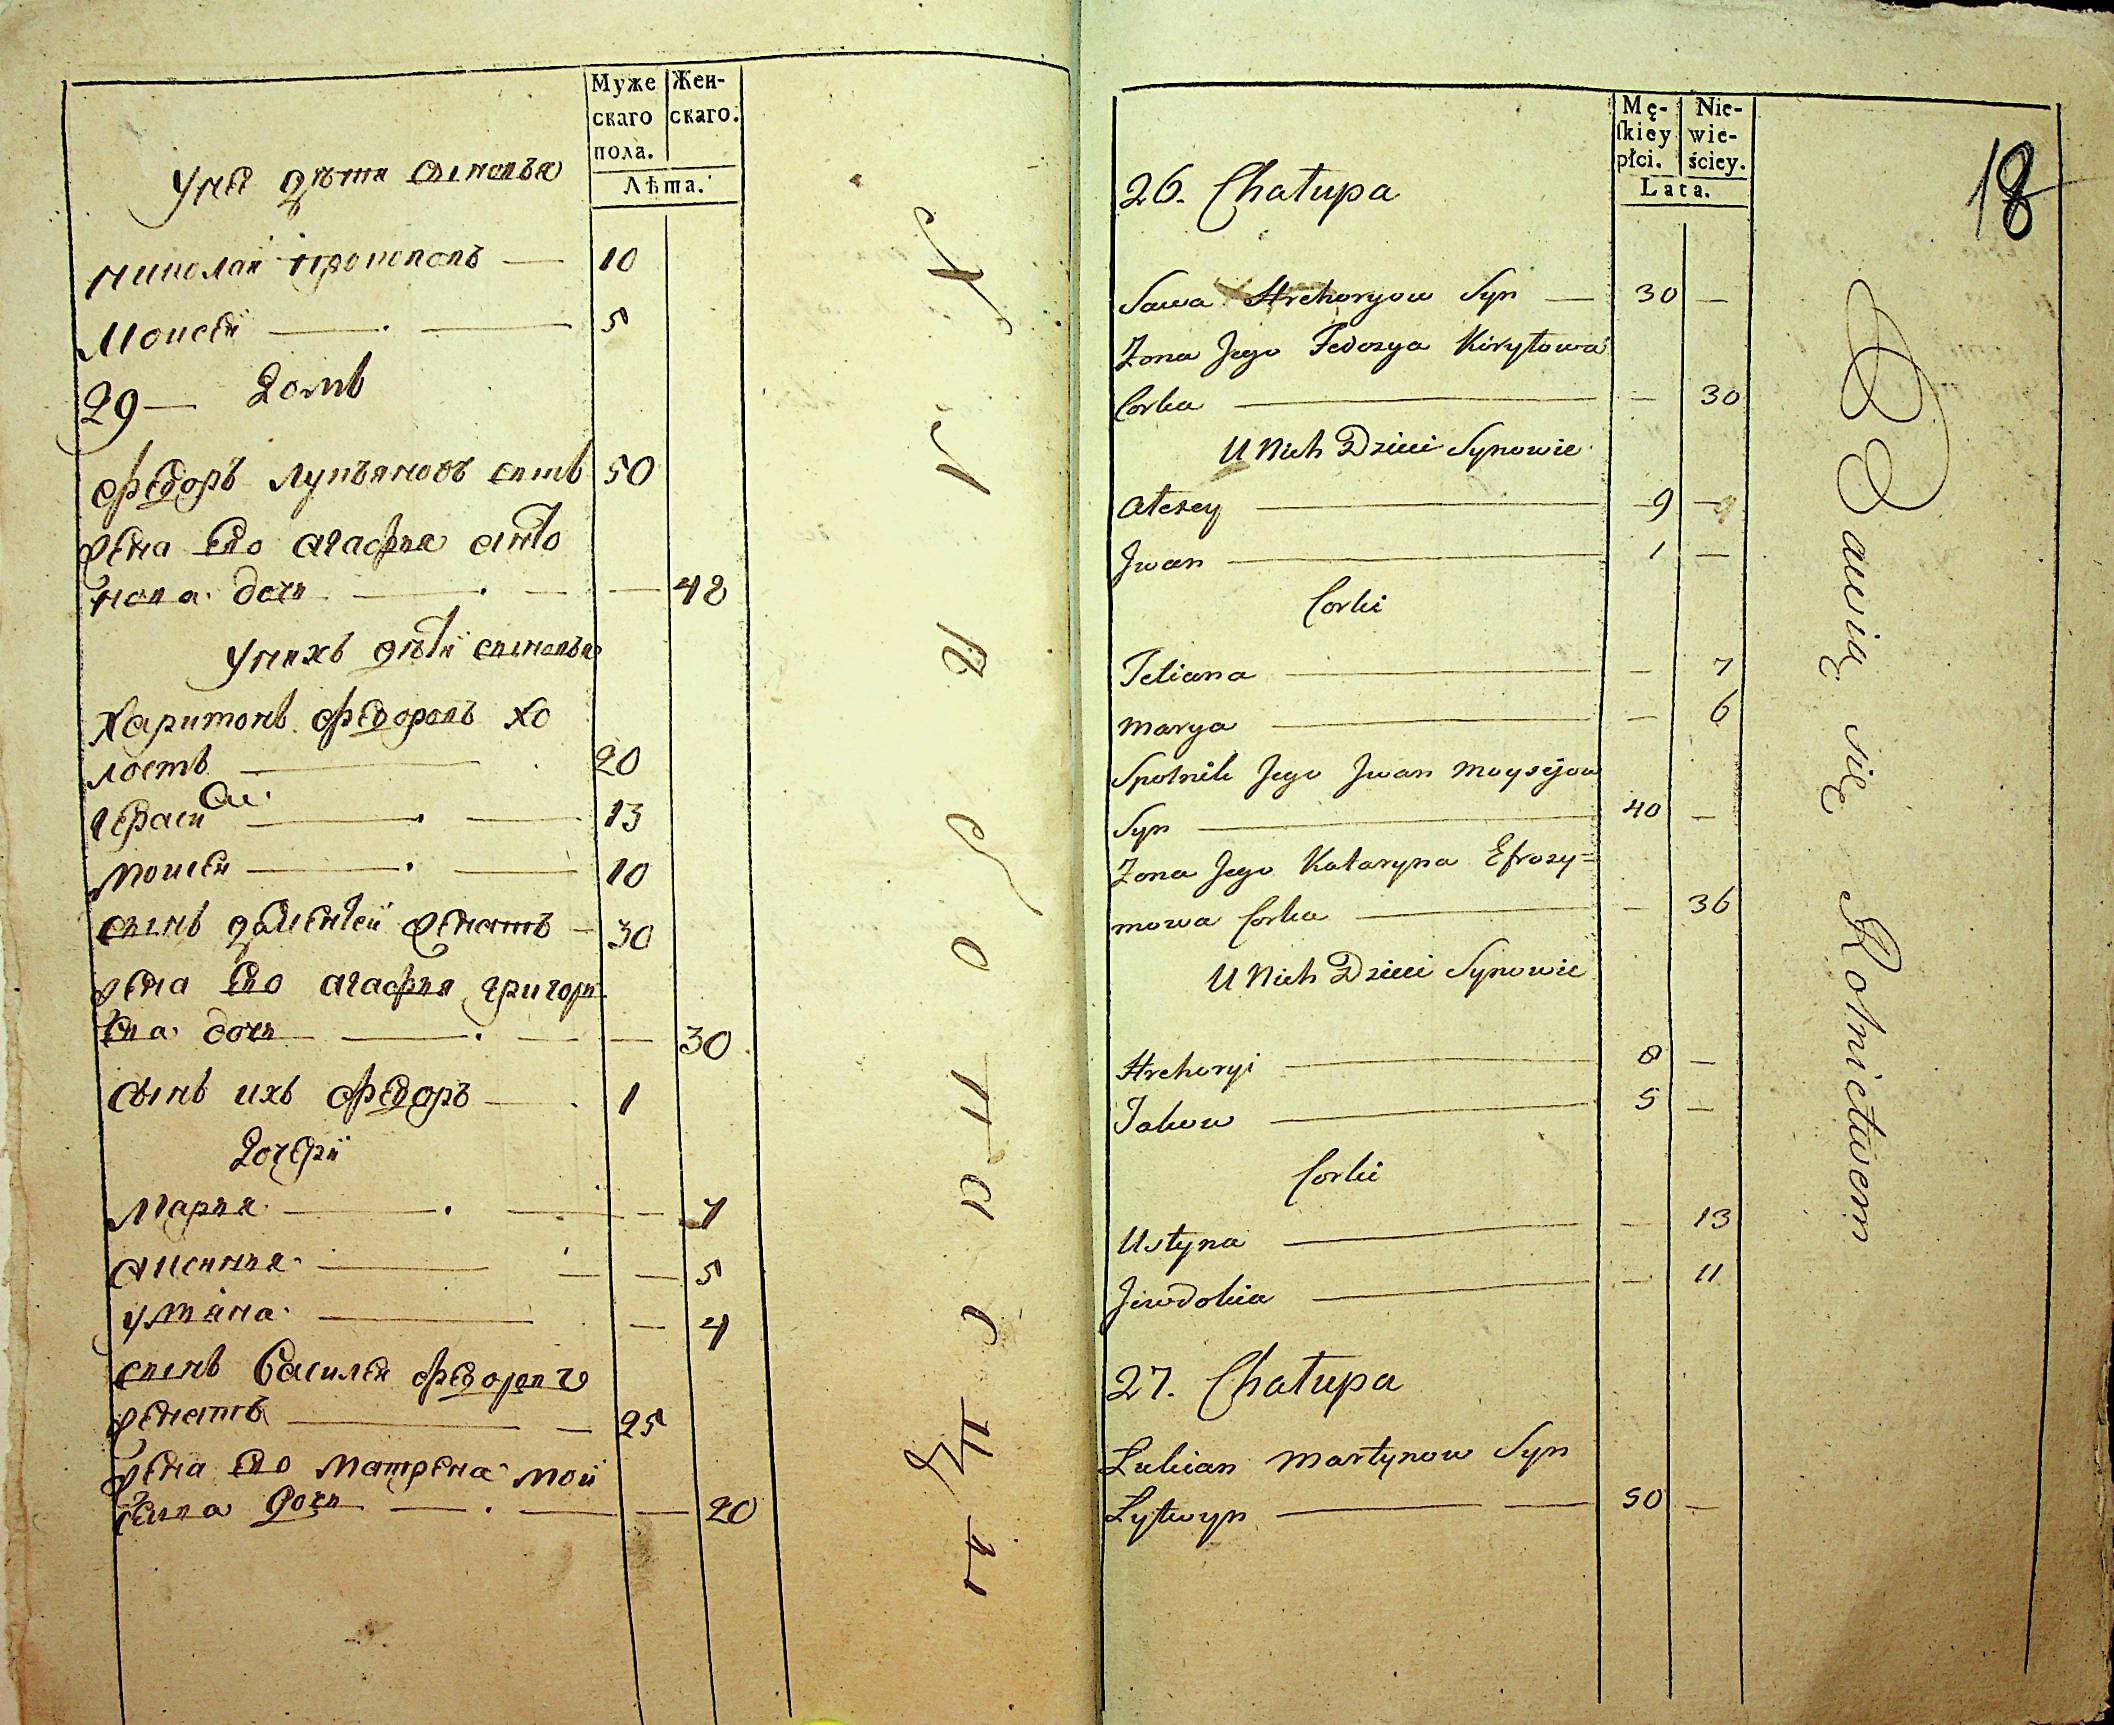 Муже
скаго
пола.
Жен-
скаго.
Лѣта.
Унея дѣти сыновья
Николай Прокоповъ — 10
Моисей — 5
29 — Домъ
Федоръ Лукъяновъ сынъ 50
Жена Его Агафия Анто
нова дочь — 48
У нихъ дѣти сыновья
Харитонъ Федоровъ хо
лостъ — 20
Гераси — 13
Моисей — 10
сынъ Дементей женатъ — 30
жена Его Агафия Григорь
Ева дочь — 30
сынъ ихъ Федоръ — 1
Дочери
Марья — 7
Аксинья — 5
Ульяна — 4
сынъ Василей Федоровъ
женатъ — 25
жена Его Матрена Мои
сеива дочь — 20
Mę-
ſkiey
płci.
Nie-
wie-
ściey.
Lata.
18
26. Chałupa
Sawa Hrehoryow Syn — 30 —
Zona Jego Fedosya Kiryłowa
Corka — 30
U Nich Dzieci Synowie
Alexey — 9 —
Jwan — 1 —
Corki
Tetiana — 7
Marya — 6
Spolnik Jego Jwan Moysejow
Syn — 40 —
Zona Jego Kataryna Efrosy=
mowa Corka — 36
U Nich Dzieci Synowie
Hrehoryi — 8 —
Jakow — 5 —
Corki
Ustyna — 13
Jewdokia — 11
27. Chałupa
Lukian Martynow Syn
Lytwyn — 50 —
Bawią się Rolnictwem